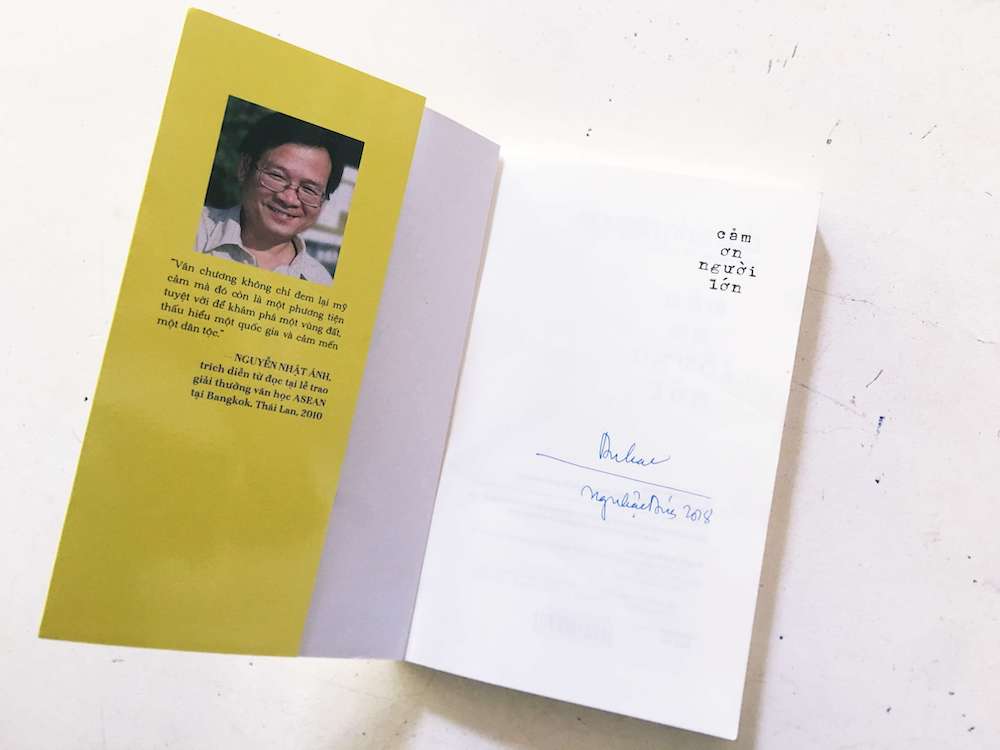 "Văn chương không chỉ đem lại mỹ
cảm mà đó còn là một phương tiện
tuyệt vời để khám phá một vùng đất,
thấu hiểu một quốc gia và cảm mến
một dân tộc."
— NGUYỄN NHẬT ÁNH,
trích diễn từ đọc tại lễ trao
giải thưởng văn học ASEAN
tại Bangkok, Thái Lan, 2010
cảm
ơn
người
lớn
2018